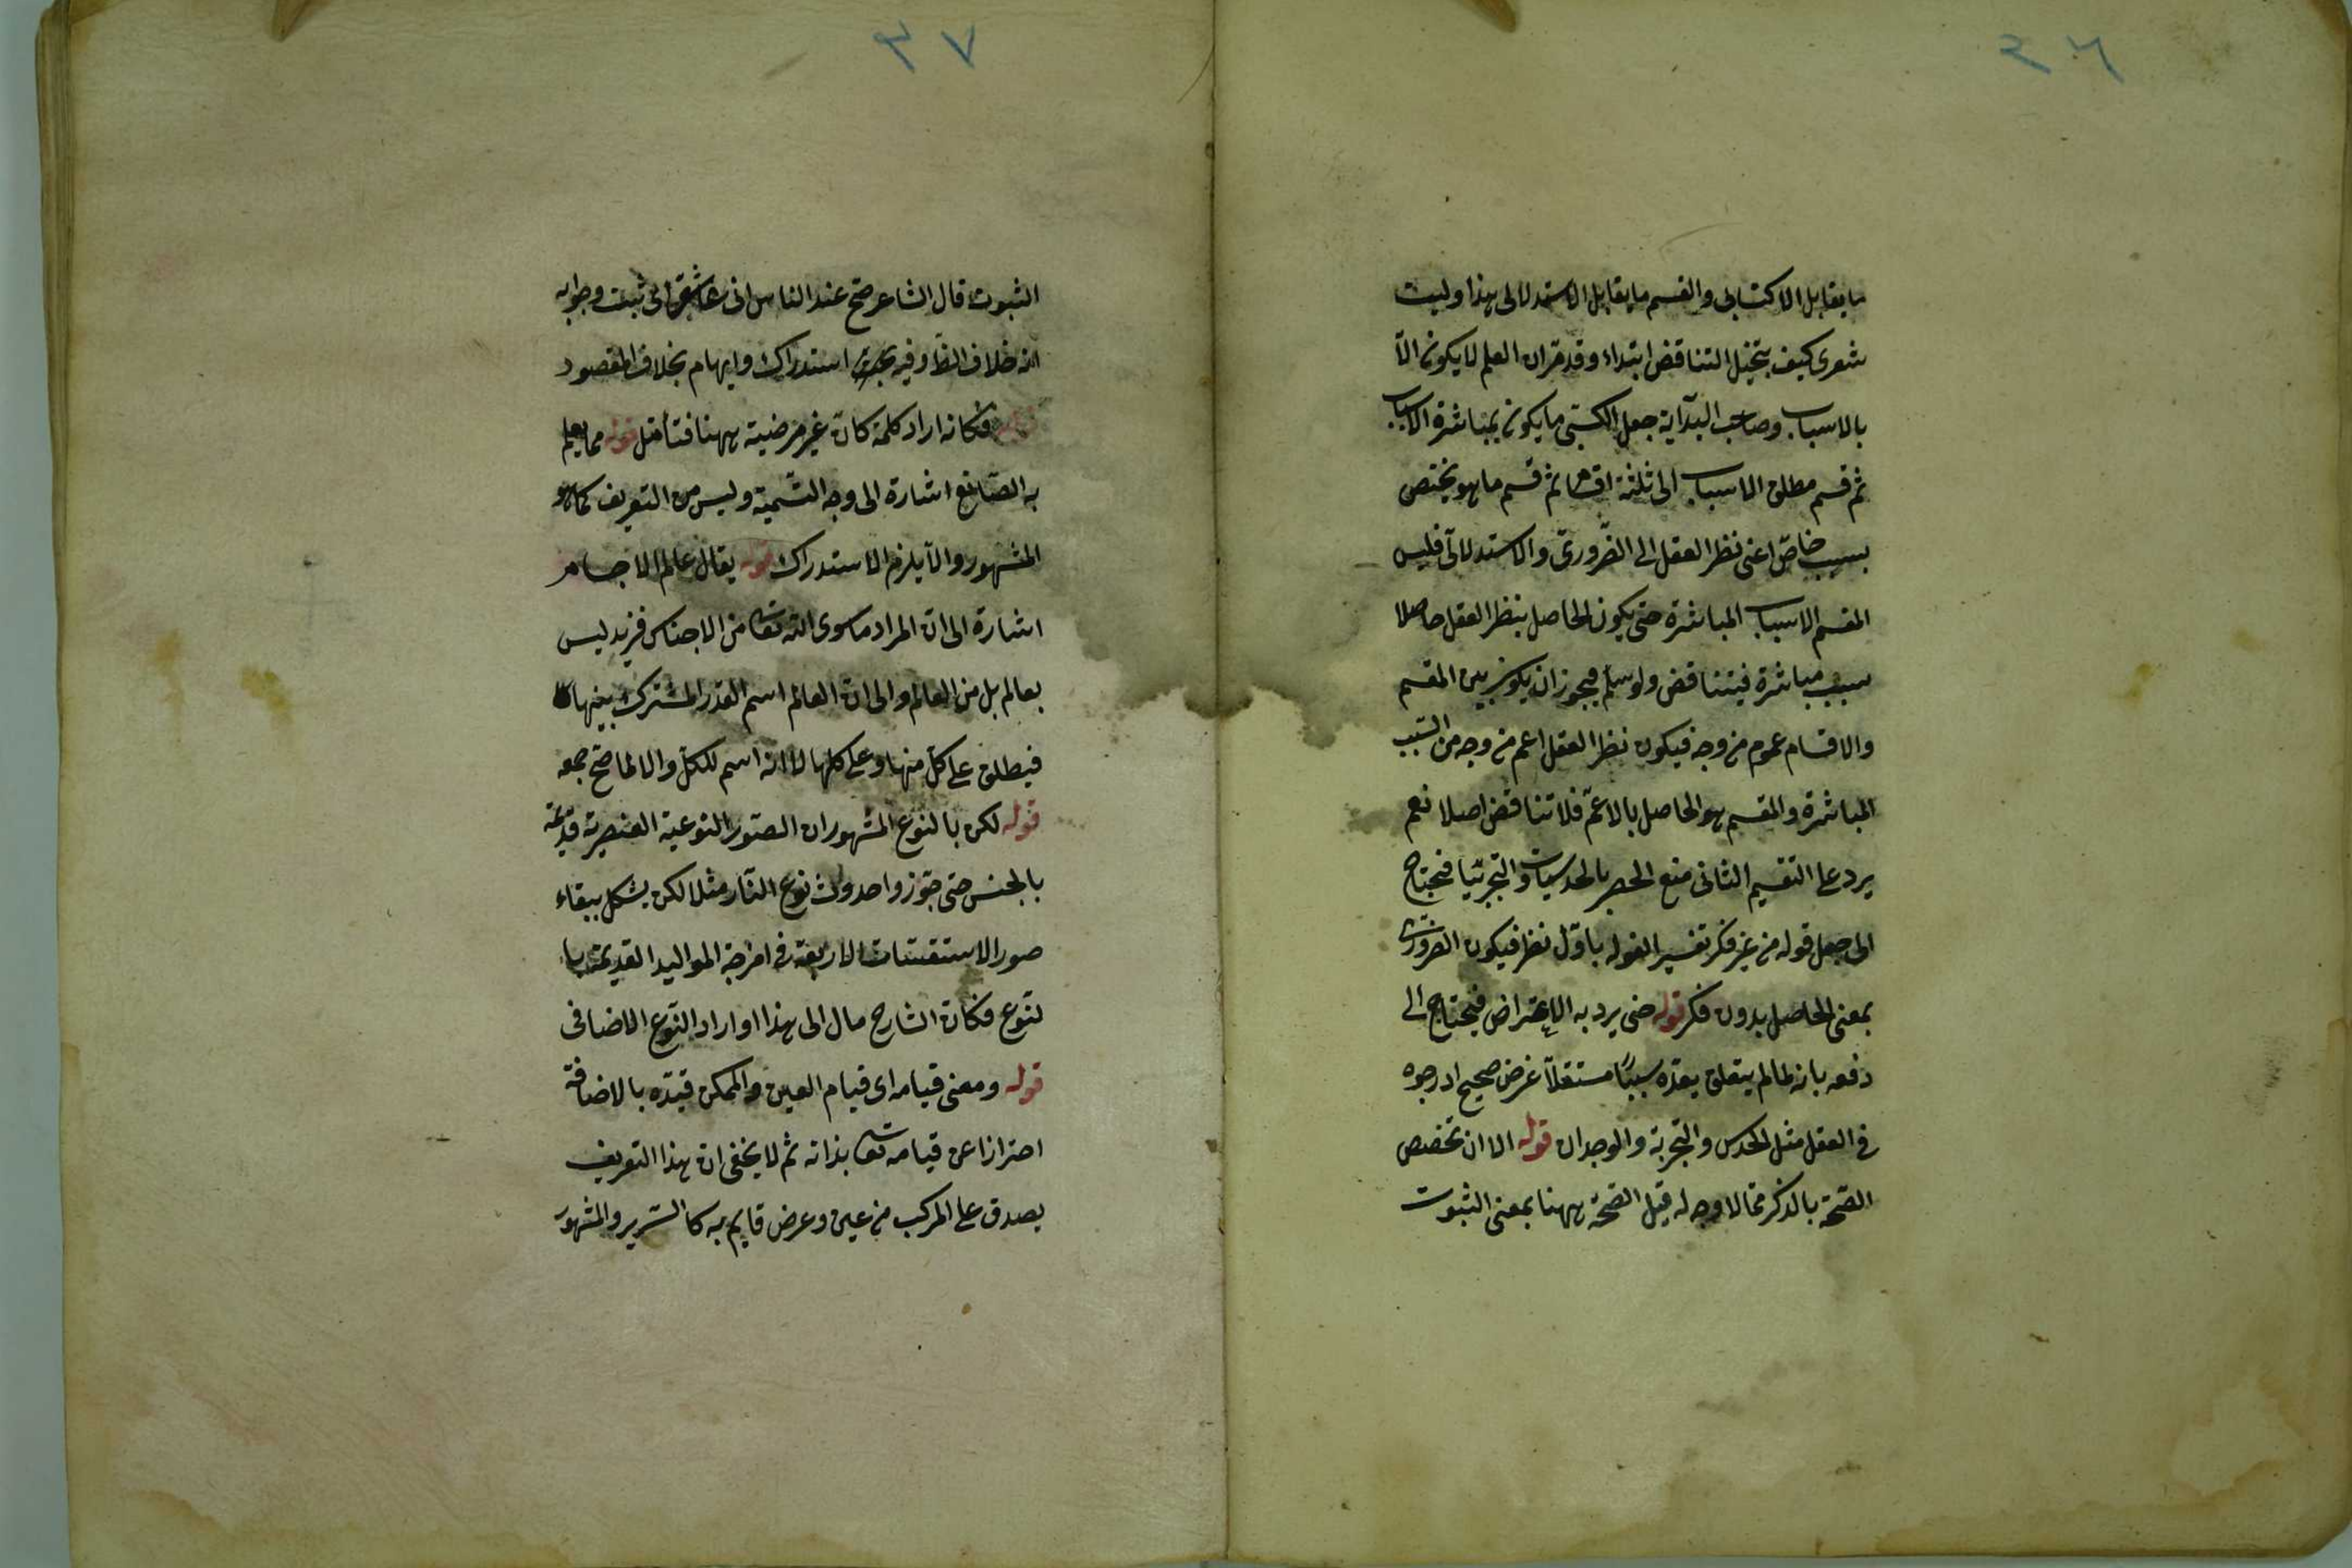 ٣٦
ما يقابل الاكتسابى والقسم ما يقابل الاستدلالى هذا وليت
شعرى كيف يتخيل التناقض ابتداء وقد مر ان العلم لا يكون الا
بالاسباب وصاحب البداية جعل الكسبى ما يكون بمباشرة الاسباب
ثم قسم مطلق الاسباب الى ثلثة اقسام ثم قسم ما هو يختص
بسبب خاص اعنى نظر العقل الى الضرورى والاستدلالى فليس
المقسم الاسباب المباشرة حتى يكون الحاصل بنظر العقل حاصلا
بسبب مباشرة فيتناقض ولو سلم فيجوز ان يكون بين المقسم
والاقسام عموم من وجه فيكون نظر العقل اعم من وجه من السبب
المباشرة والمقسم هو الحاصل بالاعم فلا تناقض اصلا نعم
يرد على التقسيم الثانى منع الحصر بالحدسيات والتجربيات فيحتاج
الى جعل قوله من غير فكر تفسيرا لقوله باول نظر فيكون الضرورى
بمعنى الحاصل بدون فكر قوله حتى يرد به الاعتراض فيحتاج الى
دفعه بانه لما لم يتعلق بعده سببا مستقلا غرض صحيح ادرجوه
فى العقل مثل الحدس والتجربة والوجدان قوله الا ان تخصيص
الصحة بالذكر مما لا وجه له قيل الصحة ههنا بمعنى الثبوت
٣٧
الثبوت قال الشاعر صح عند الناس انى عاشق اى ثبت وجوابه
انه خلاف الظ وفيه استدراك وايهام بخلاف المقصود
فكانه اراد كلمة كان غير مرضية ههنا فتأمل قوله مما يعلم
به الصانع اشارة الى وجه التسمية وليس من التعريف كما هو
المشهور والا يلزم الاستدراك قوله يقال عالم الاجسام
اشارة الى ان المراد ما سوى الله تعا من الاجناس فزيد ليس
بعالم بل من العالم والى ان العالم اسم للقدر المشترك بينها
فيطلق على كل منها وعلى كلها لا انه اسم للكل والا لما صح جمعه
قوله لكن بالنوع المشهور ان الصور النوعية العنصرية قديمة
بالجنس حتى جوزوا حدوث نوع النار مثلا لكن يشكل ببقاء
صور الاستقسات الاربعة فى امزجة المواليد القديمة با
لنوع فكان الشارح مال الى هذا او اراد النوع الاضافى
قوله ومعنى قيامه اى قيام العين والممكن قيده بالاضافة
احترازا عن قيامه تعا بذاته ثم لا يخفى ان هذا التعريف
يصدق على المركب من عين وعرض قايم به كالسرير والمشهور